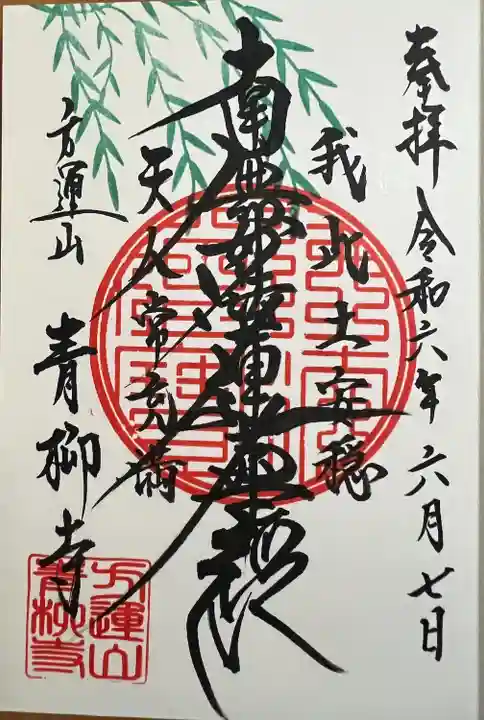 奉拝 令和六年 六月七日
我此土安穏
南無妙法蓮華経
天人常充満
方運山
青柳寺
方運山
青柳寺